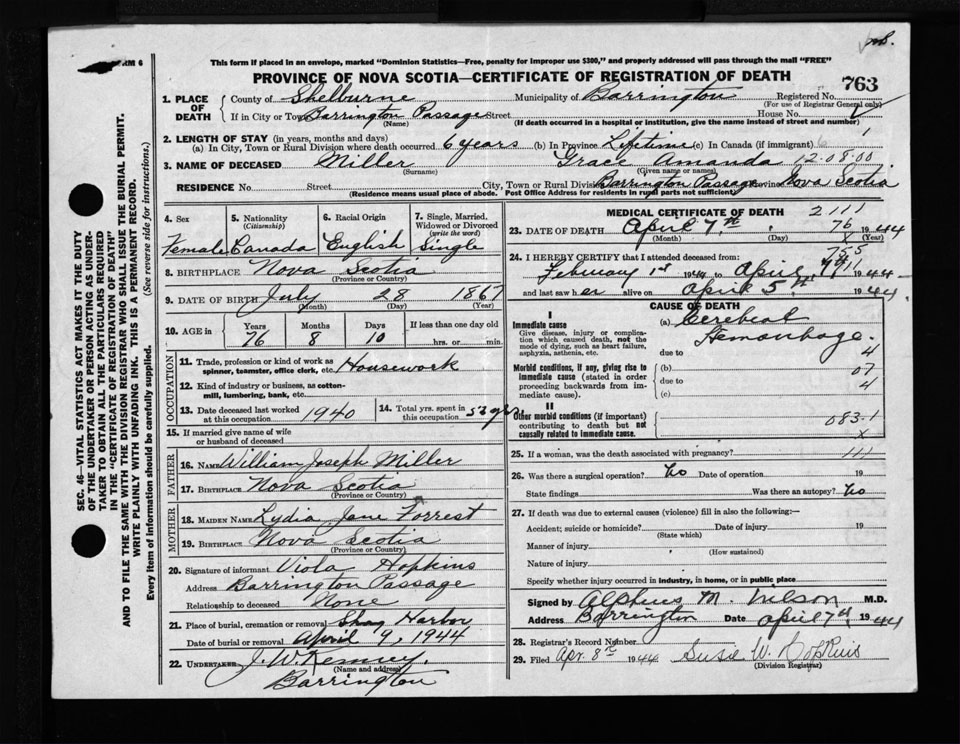 ORM 6
This form if placed in an envelope, marked "Dominion Statistics—Free, penalty for improper use $300," and properly addressed will pass through the mail "FREE"
PROVINCE OF NOVA SCOTIA—CERTIFICATE OF REGISTRATION OF DEATH
763
1. PLACE OF DEATH County of Shelburne Municipality of Barrington Registered No.
(For use of Registrar General only)
If in City or Town Barrington Passage Street House No.
(Name) (If death occurred in a hospital or institution, give the name instead of street and number)
2. LENGTH OF STAY (in years, months and days)
(a) In City, Town or Rural Division where death occurred 6 years (b) In Province Lifetime (c) In Canada (if immigrant)
3. NAME OF DECEASED Miller Grace Amanda 12-08-00
(Surname) (Given name or names)
RESIDENCE No. Street City, Town or Rural Division Barrington Passage Province Nova Scotia
(Residence means usual place of abode. Post Office Address for residents in rural parts not sufficient)
4. Sex 5. Nationality (Citizenship) 6. Racial Origin 7. Single, Married, Widowed or Divorced (write the word)
Female Canada English Single
8. BIRTHPLACE Nova Scotia
(Province or Country)
9. DATE OF BIRTH July 28 1867
(Month) (Day) (Year)
10. AGE in Years Months Days If less than one day old
76 8 10 hrs. or min.
OCCUPATION
11. Trade, profession or kind of work as spinner, teamster, office clerk, etc. Housework
12. Kind of industry or business, as cotton-mill, lumbering, bank, etc.
13. Date deceased last worked at this occupation 1940 14. Total yrs. spent in this occupation
15. If married give name of wife or husband of deceased
FATHER
16. NAME William Joseph Miller
17. BIRTHPLACE Nova Scotia
(Province or Country)
MOTHER
18. MAIDEN NAME Lydia Jane Forrest
19. BIRTHPLACE Nova Scotia
(Province or Country)
20. Signature of informant Viola Hopkins
Address Barrington Passage
Relationship to deceased None
21. Place of burial, cremation or removal Shag Harbor
Date of burial or removal April 9, 1944
22. UNDERTAKER J. W. Kenney,
(Name and address)
Barrington
MEDICAL CERTIFICATE OF DEATH 2111
23. DATE OF DEATH April 7th 76 1944
(Month) (Day) (Year)
24. I HEREBY CERTIFY that I attended deceased from:
February 1st 1944 to April 1944
and last saw her alive on April 5th 1944
CAUSE OF DEATH
I
Immediate cause (a) Cerebral
Give disease, injury or complication which caused death, not the mode of dying, such as heart failure, asphyxia, asthenia, etc. Hemorrhage.
due to 4
Morbid conditions, if any, giving rise to immediate cause (stated in order proceeding backwards from immediate cause). (b) 07
due to 4
(c)
II
Other morbid conditions (if important) contributing to death but not causally related to immediate cause. 083-1
X
25. If a woman, was the death associated with pregnancy? 111
26. Was there a surgical operation? No Date of operation 19
State findings Was there an autopsy? No
27. If death was due to external causes (violence) fill in also the following:—
Accident; suicide or homicide? Date of injury 19
(State which)
Manner of injury
(How sustained)
Nature of injury
Specify whether injury occurred in industry, in home, or in public place
Signed by Alpheus M. Wilson M.D.
Address Barrington Date April 7th 1944
28. Registrar's Record Number
29. Filed Apr. 8th 1944 Susie W. Hopkins
(Division Registrar)
SEC. 46—VITAL STATISTICS ACT MAKES IT THE DUTY
OF THE UNDERTAKER OR PERSON ACTING AS UNDER-
TAKER TO OBTAIN ALL THE PARTICULARS REQUIRED
IN THE "CERTIFICATE OF REGISTRATION OF DEATH"
AND TO FILE THE SAME WITH THE DIVISION REGISTRAR WHO SHALL ISSUE THE BURIAL PERMIT.
WRITE PLAINLY WITH UNFADING INK. THIS IS A PERMANENT RECORD.
Every item of information should be carefully supplied. (See reverse side for instructions.)